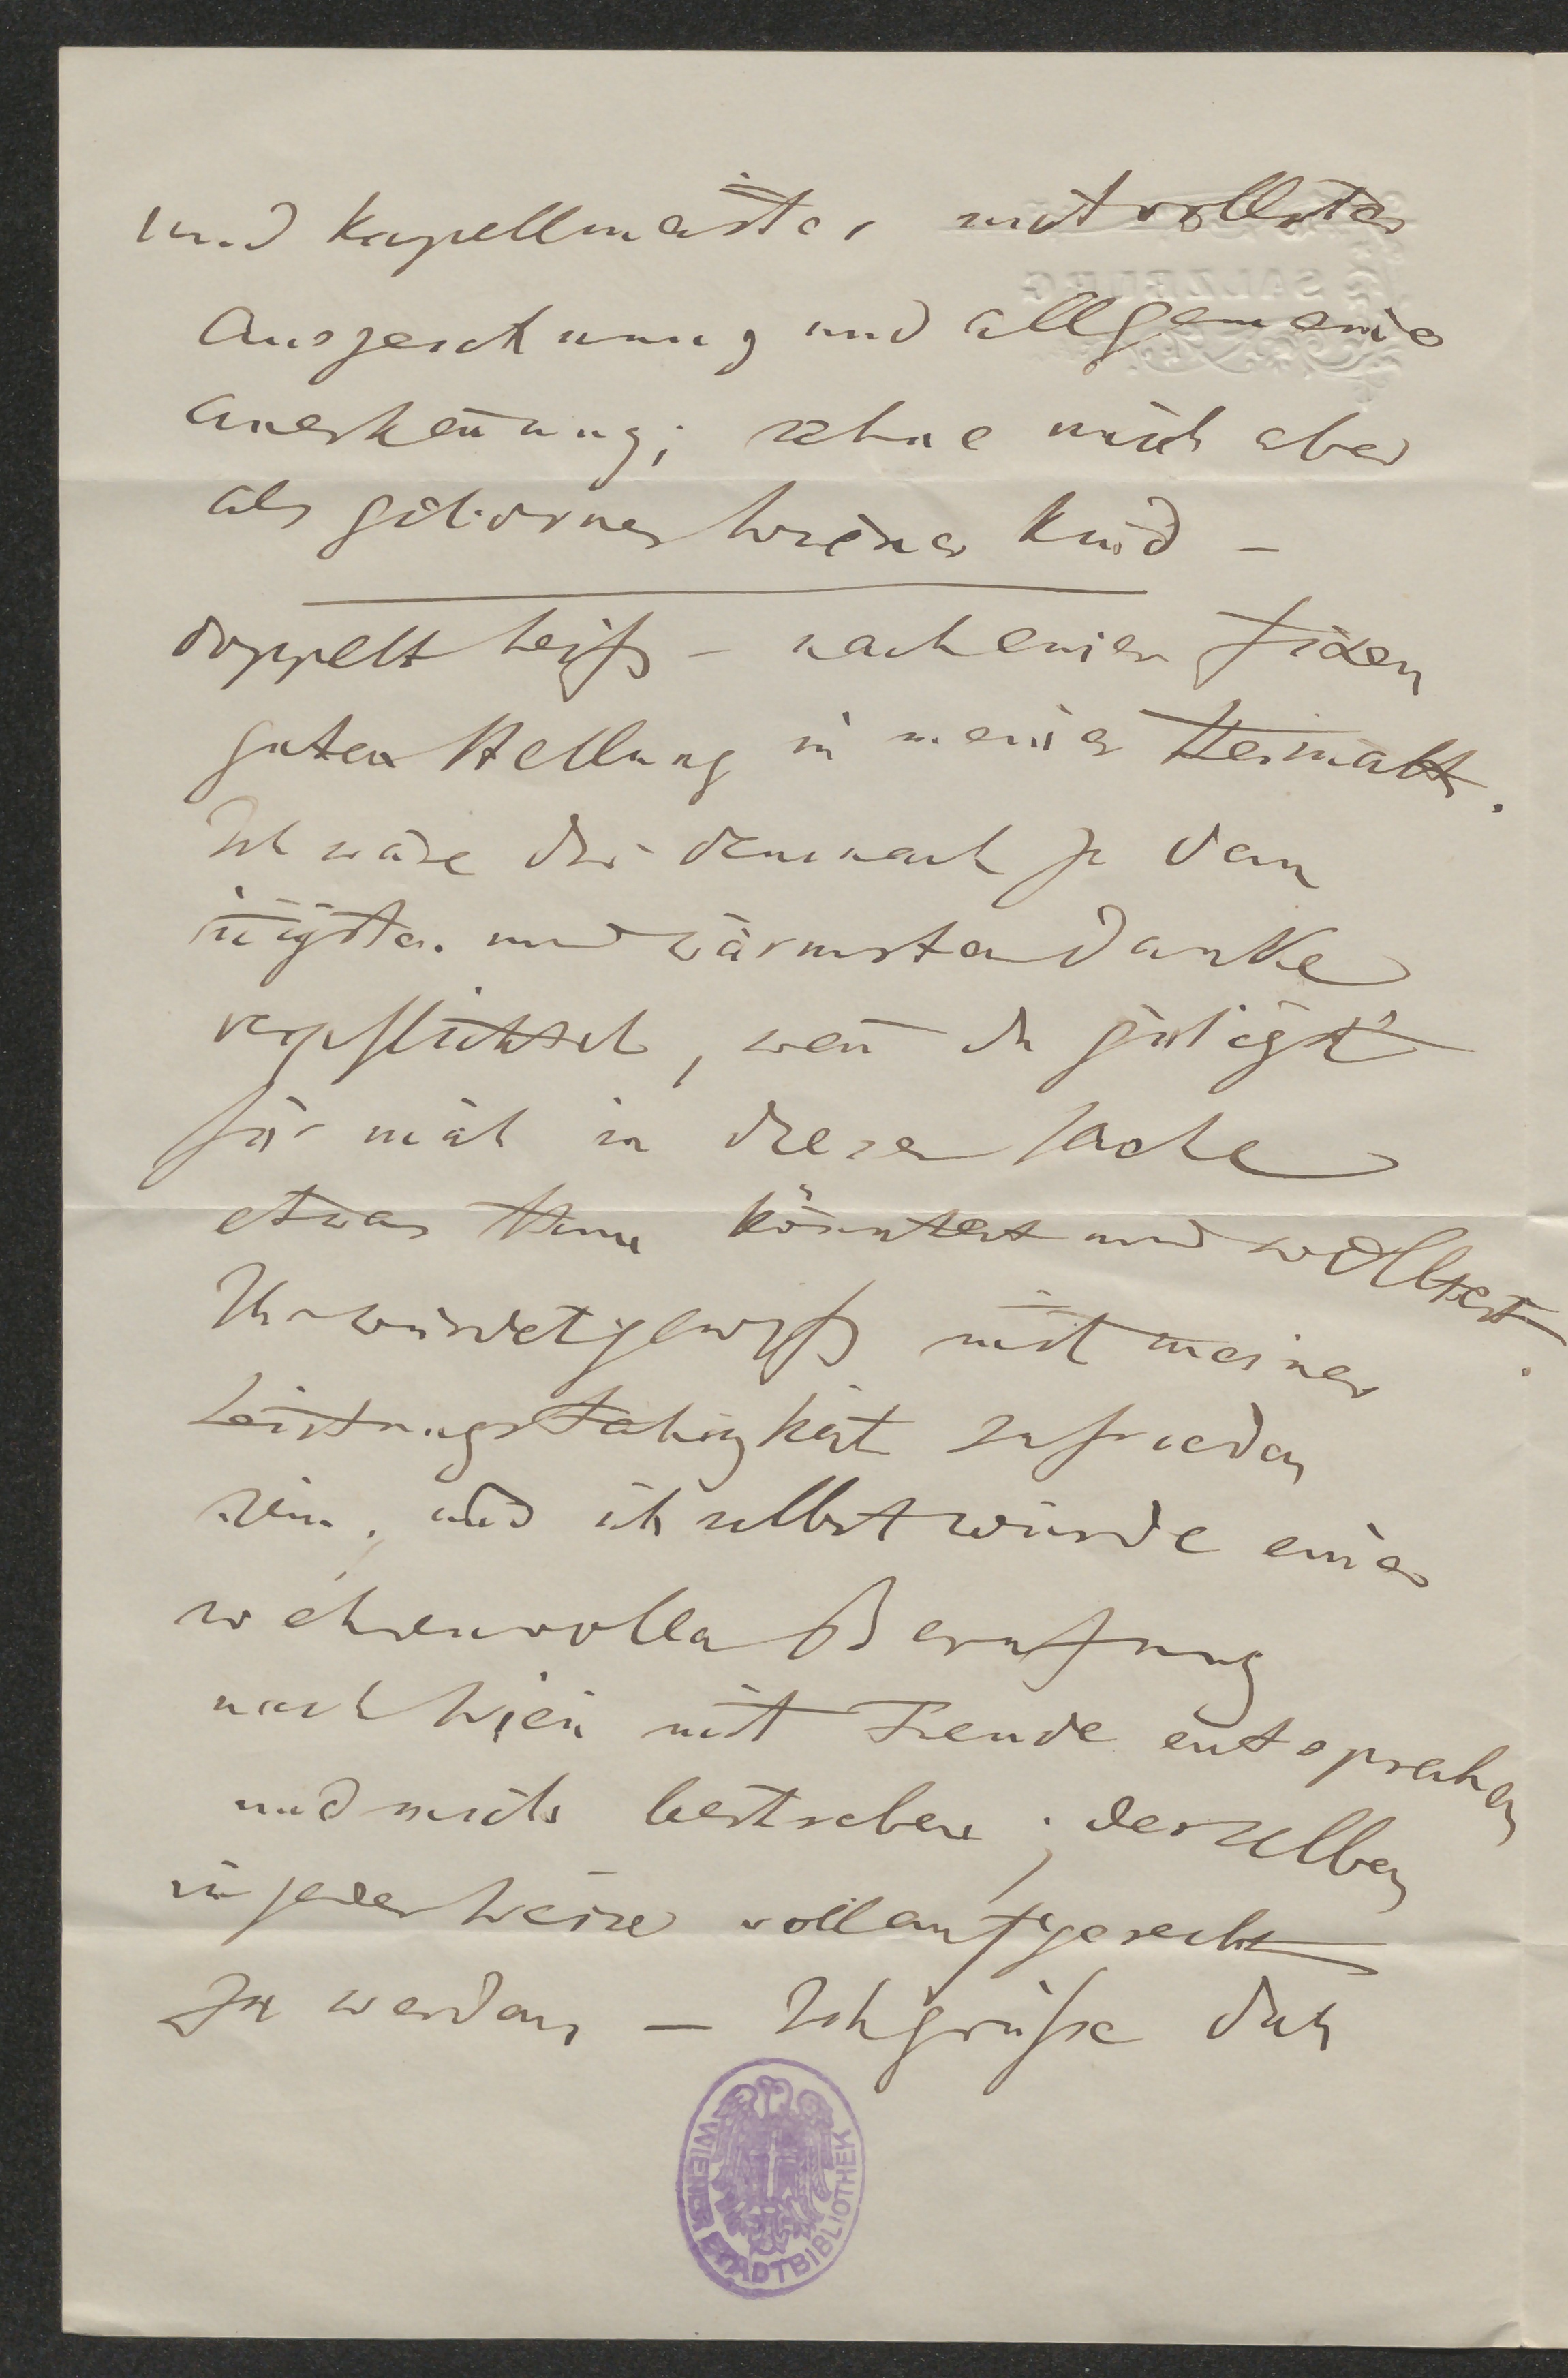 und Kapellmeister mit vollster
Auszeichnung und allgemeine
Anerkeñung; sehne mich aber
als geborner Wiener Kind –
doppelt heiß – nach einer fixen
guten Stellung in meiner Heimatt.
Ich wäre Dir demnach zu dem
iñigsten und wärmsten Danke
verpflichtet, weñ Du gütigst
für mich in dieser Sache
etwas thun könntest und wolltest.
Ihr würdet gewiß mit meiner
Leistungsfähigkeit zufrieden
sein, und ich selbst würde einer
so ehrenvollen Berufung
nach Wien mit Freude entsprechen
und mich bestreben, derselben
in jeder Weise vollauf gerecht
zu werden, – Ich grüße Dich
SALZBURG
WIENER STADTBIBLIOTHEK